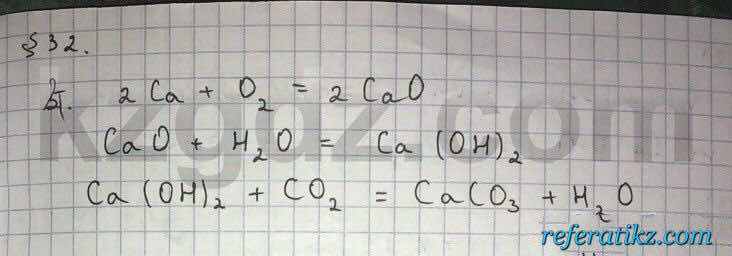 § 32.
2 Ca + O₂ = 2 CaO
CaO + H₂O = Ca (OH)₂
Ca (OH)₂ + CO₂ = CaCO₃ + H₂O
kzgdz.com
referatikz.com